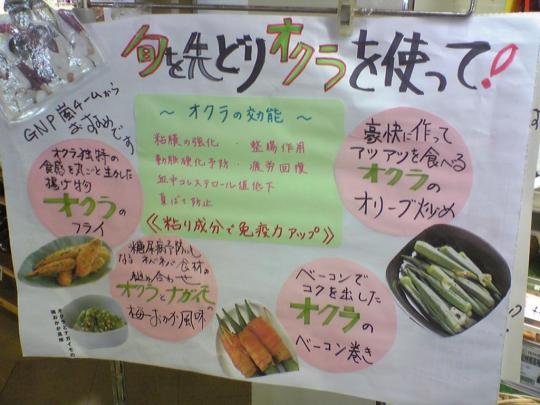 旬を先どりオクラを使って!
GNP嵐チームから
おすすめです
～オクラの効能～
粘膜の強化・整腸作用
動脈硬化予防・疲労回復
血中コレステロール値低下
夏ばて防止
《粘り成分で免疫力アップ》
オクラ独特の
食感を丸ごと生かした
揚げ物
オクラの
フライ
豪快に作って
アツアツを食べる
オクラの
オリーブ炒め
糖尿病予防にも
なるネバネバ食材の
組み合わせ
オクラとナガイモの
梅おかか風味
ベーコンで
コクを出した
オクラの
ベーコン巻き
オクラとナガイモの
梅おかか風味